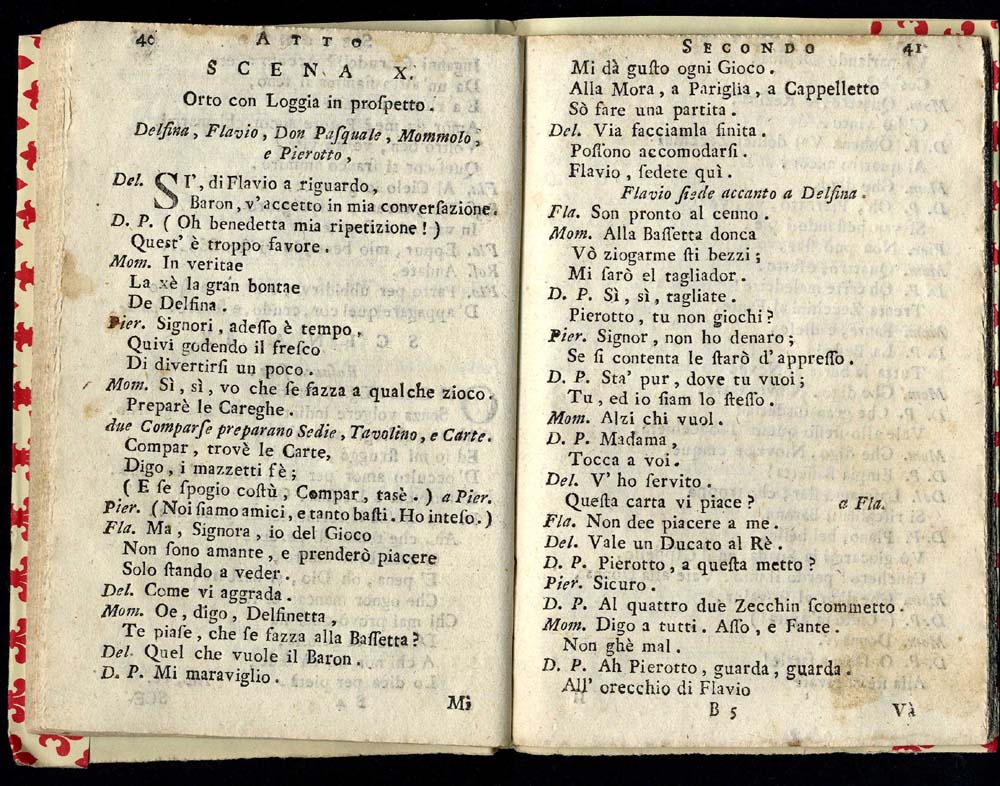 40 ATTO
SCENA X.
Orto con Loggia in proſpetto.
Delfina, Flavio, Don Paſquale, Mommolo,
e Pierotto,
Del. SI', di Flavio a riguardo,
Baron, v'accetto in mia converſazione.
D. P. (Oh benedetta mia ripetizione!)
Queſt' è troppo favore.
Mom. In veritae
La xè la gran bontae
De Delfina.
Pier. Signori, adeſſo è tempo,
Quivi godendo il freſco
Di divertirſi un poco.
Mom. Sì, sì, vo che ſe fazza a qualche zioco.
Preparè le Careghe.
due Comparſe preparano Sedie, Tavolino, e Carte.
Compar, trovè le Carte,
Digo, i mazzetti fè;
(E ſe ſpogio coſtù, Compar, tasè.) a Pier.
Pier. (Noi ſiamo amici, e tanto baſti. Ho inteſo.)
Fla. Ma, Signora, io del Gioco
Non ſono amante, e prenderò piacere
Solo ſtando a veder.
Del. Come vi aggrada.
Mom. Oe, digo, Delfinetta,
Te piaſe, che ſe fazza alla Baſſetta?
Del. Quel che vuole il Baron.
D. P. Mi maraviglio.
Mi
SECONDO 41
Mi dà guſto ogni Gioco.
Alla Mora, a Pariglia, a Cappelletto
Sò fare una partita.
Del. Via facciamla finita.
Poſſono accomodarſi.
Flavio, ſedete quì.
Flavio ſiede accanto a Delfina.
Fla. Son pronto al cenno.
Mom. Alla Baſſetta donca
Vò ziogarme ſti bezzi;
Mi farò el tagliador.
D. P. Sì, sì, tagliate.
Pierotto, tu non giochi?
Pier. Signor, non ho denaro;
Se ſi contenta le ſtarò d'appreſſo.
D. P. Sta' pur, dove tu vuoi;
Tu, ed io ſiam lo ſteſſo.
Mom. Alzi chi vuol.
D. P. Madama,
Tocca a voi.
Del. V' ho ſervito.
Queſta carta vi piace? a Fla.
Fla. Non dee piacere a me.
Del. Vale un Ducato al Rè.
D. P. Pierotto, a queſta metto?
Pier. Sicuro.
D. P. Al quattro due Zecchin ſcommetto.
Mom. Digo a tutti. Aſſo, e Fante.
Non ghè mal.
D. P. Ah Pierotto, guarda, guarda.
All' orecchio di Flavio
B 5 Và